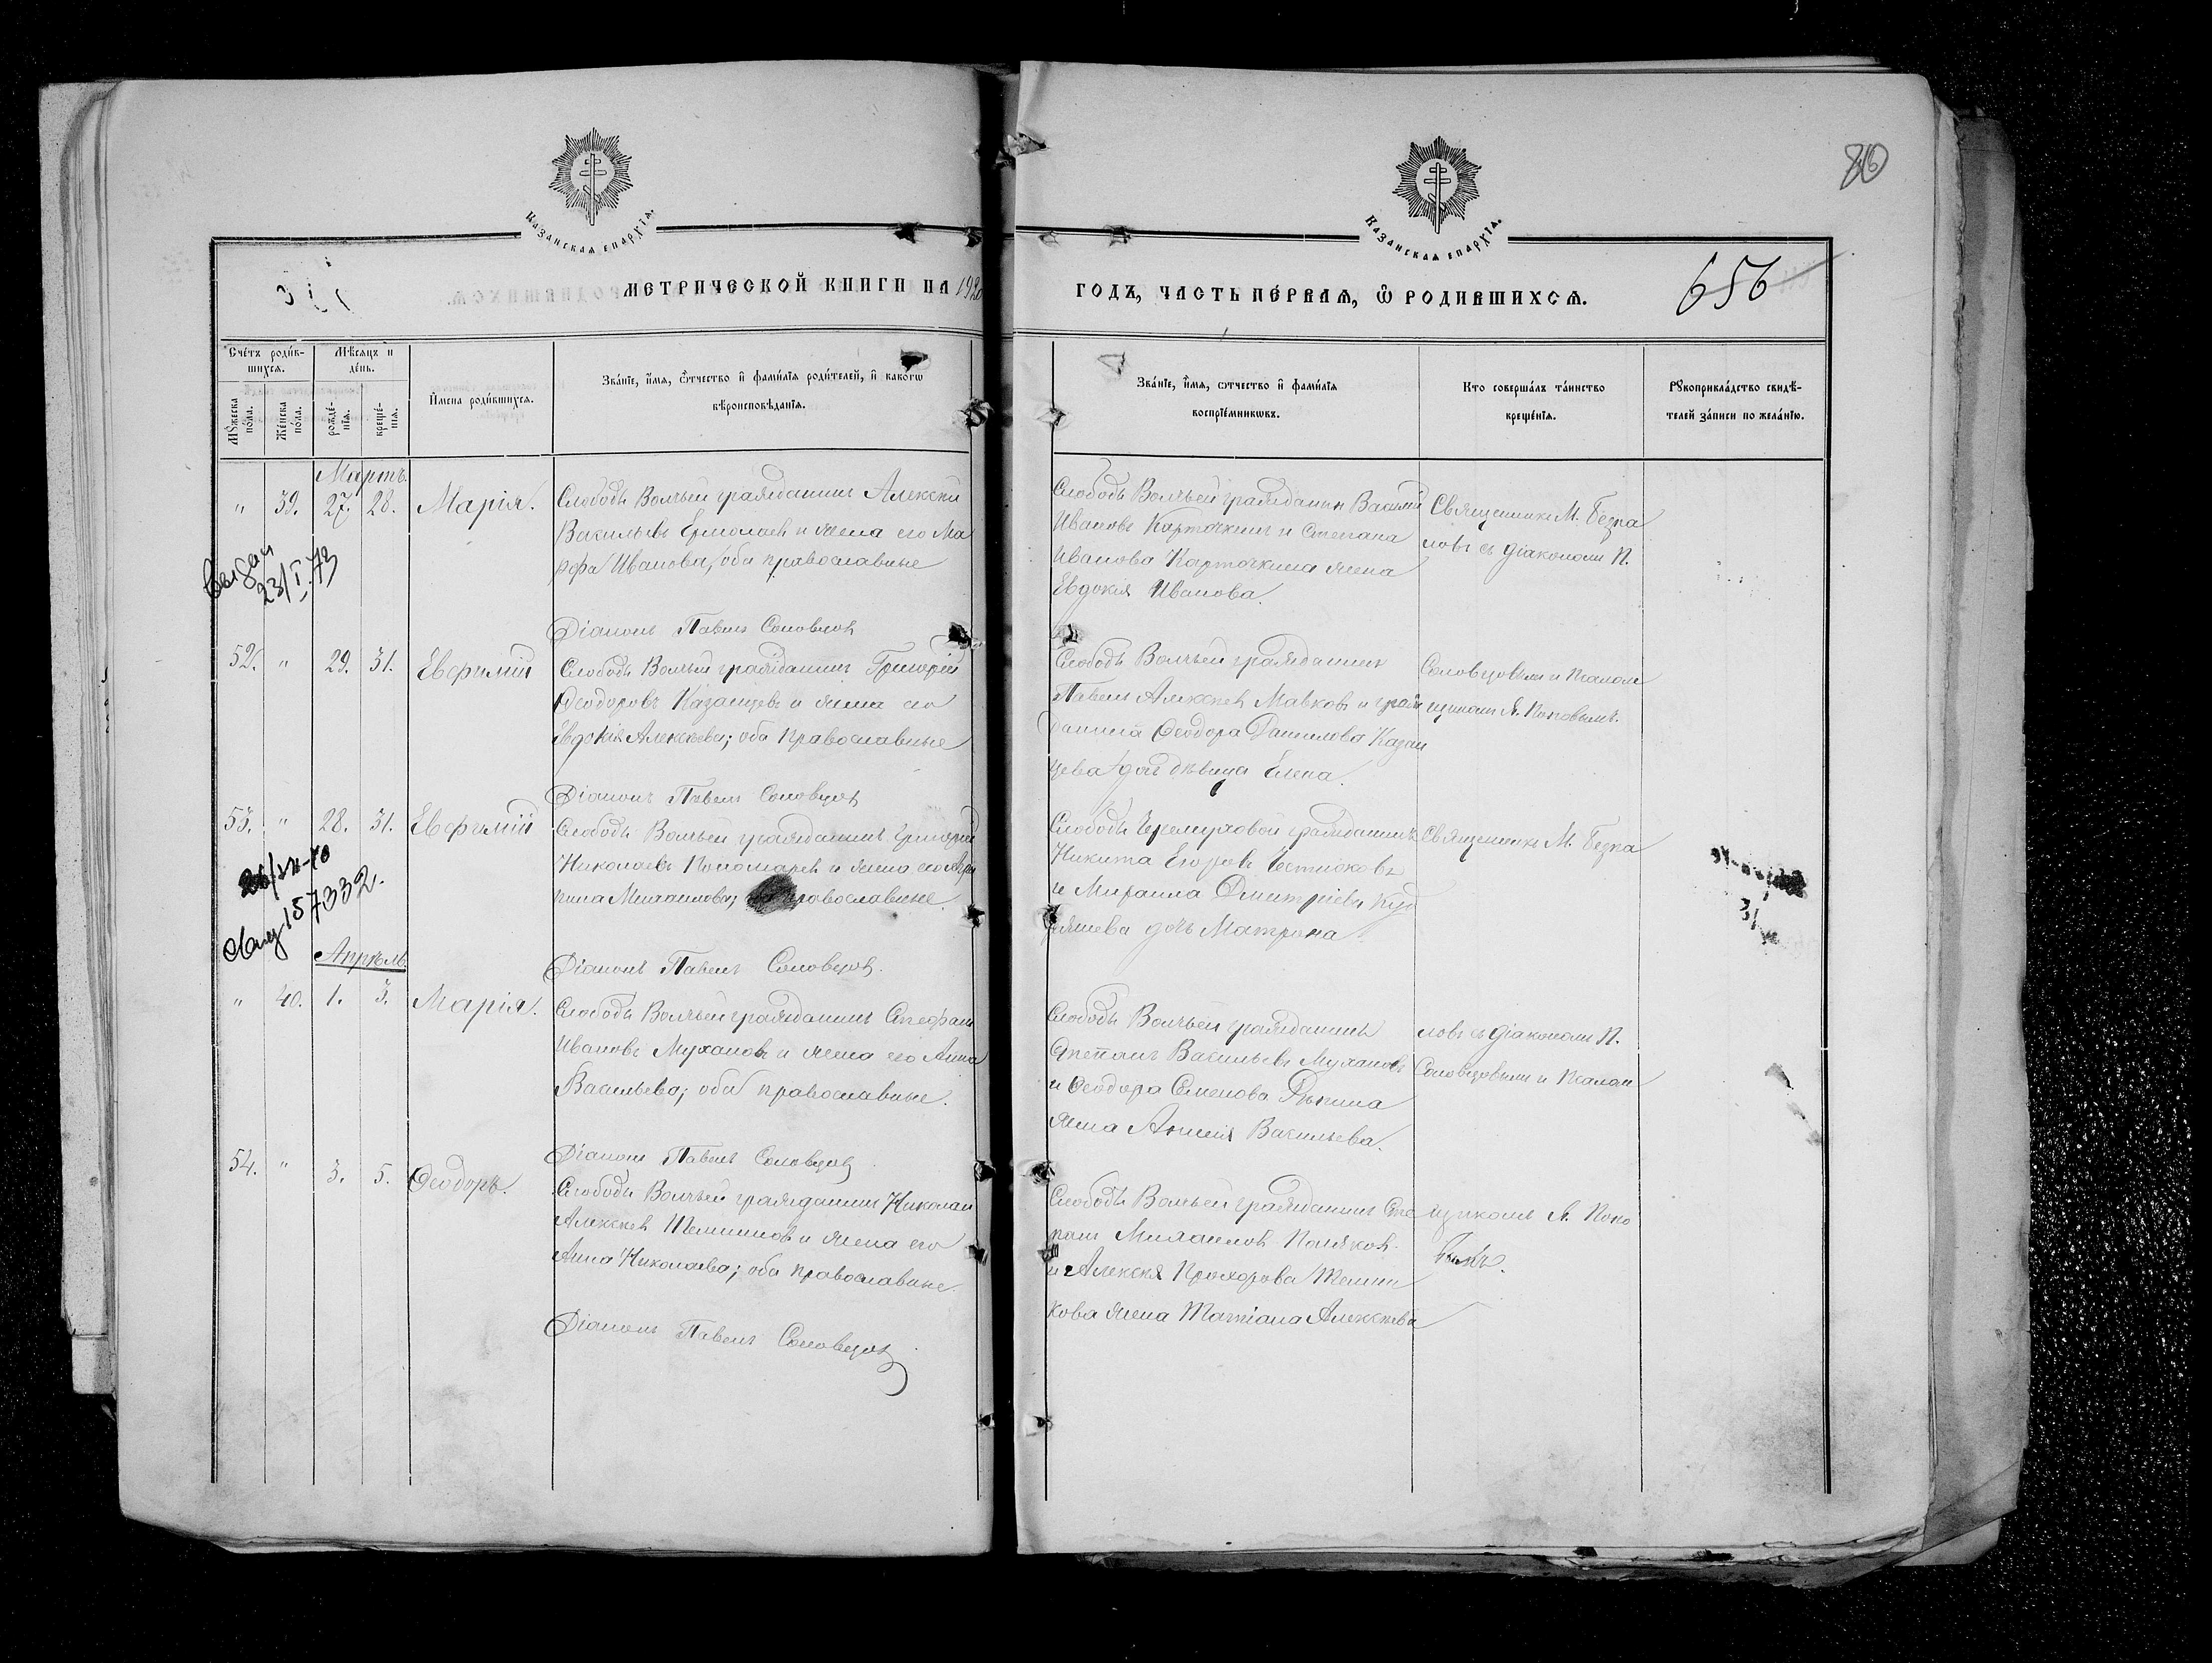 Казанская епархія.
Казанская епархія.
86
МЕТРИЧЕСКОЙ КНИГИ НА 1920
ГОДЪ, ЧАСТЬ ПЕ́РВАЯ, Ѡ РОДИВШИХСЯ.
656
Сче́тъ роди́в-
шихся.
Мѣсяцъ и
де́нь.
Му́жеска по́ла.
Же́нска по́ла.
рожде́-
нія.
креще́-
нія.
И҆́мена роди́вшихся.
Зва́ніе, и҆́мя, ѻ҆́тчество и҆ фами́лія роди́телей, и҆ како́гѡ
вѣроисповѣ́данія.
Зва́ніе, и҆́мя, ѻ҆́тчество и҆ фами́лія
воспріе́мниковъ.
Кто соверша́лъ та́инство
креще́нія.
Рꙋкоприкла́дство свидѣ́-
телей за́писи по жела́нію.
Мартъ.
" 39. 27. 28. Марія.
Слободы Волчьей гражданинъ Алексѣй
Васильевъ Ермолаевъ и жена его Ма
рфа Иванова, оба православные
Діаконъ Павелъ Соловцовъ
Слободы Волчьей гражданин Василій
Ивановъ Карточкинъ и Степана
Иванова Карточкина жена
Евдокія Иванова.
Священникъ М. Безпа
ловъ съ діакономъ П.
Выдан
23/I.73
52. " 29. 31. Евфимій
Слободы Волчьей гражданинъ Григорій
Ѳеодоровъ Казанцевъ и жена его
Евдокія Алексѣева; оба православные
Діаконъ Павелъ Соловцовъ
Слободы Волчьей гражданинъ
Павелъ Алексѣевъ Мавковъ и граж
данина Ѳеодора Данилова Казан
цева дочь дѣвица Елена.
Соловцовымъ и Псалом
щикомъ Я. Поповымъ.
53. " 28. 31. Евфимій
Слободы Волчьей гражданинъ Григорій
Николаевъ Пономаревъ и жена его Агри
пина Михаилова; православные.
Діаконъ Павелъ Соловцовъ.
Слободы Черемуховой гражданинъ
Никита Егоровъ
и Михаила Дмитріева Куд
ряшева дочь Матрона.
Священникъ М. Безпа
157332.
Апрѣль.
" 40. 1. 3. Марія.
Слободы Волчьей гражданинъ Стефанъ
Ивановъ Мухановъ и жена его Анна
Васильева; оба православные.
Діаконъ Павелъ Соловцовъ
Слободы Волчьей гражданинъ
Степанъ Васильевъ Мухановъ
и Ѳеодора Семенова Рѣпина
жена Анисія Васильева.
ловъ съ діакономъ П.
Соловцовымъ и Псалом
54. " 3. 5. Ѳеодоръ.
Слободы Волчьей гражданинъ Николай
Алексѣевъ Темниковъ и жена его
Анна Николаева; оба православные.
Діаконъ Павелъ Соловцовъ
Слободы Волчьей гражданинъ Сте
панъ Михаиловъ Поляковъ
и Алексѣя Прохорова Темни
кова жена Татіана Алексѣева
щикомъ Я. Попо
вымъ.